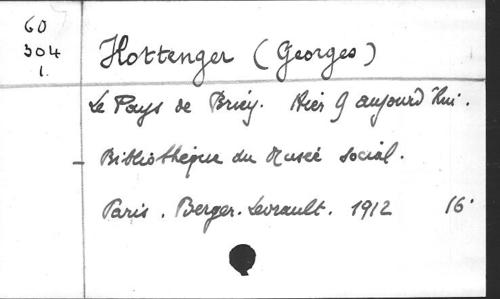 60
304
1.
Hottenger (Georges)
Le Pays de Briey. Hier & aujourd'hui.
Bibliothèque du Musée social.
Paris. Berger-Levrault. 1912 16°